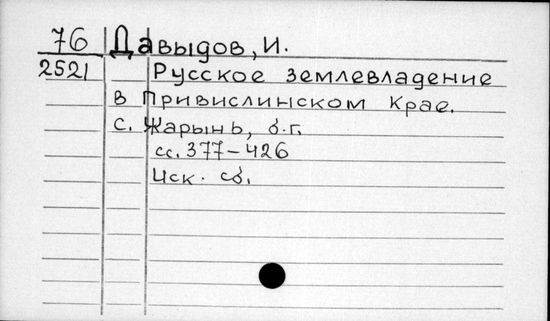 76 Давыдов, И.
2521 Русское землевладение
в Привислинском Крае.
с. Жарынь, б.г.
сс. 377-426
Иск. сб.